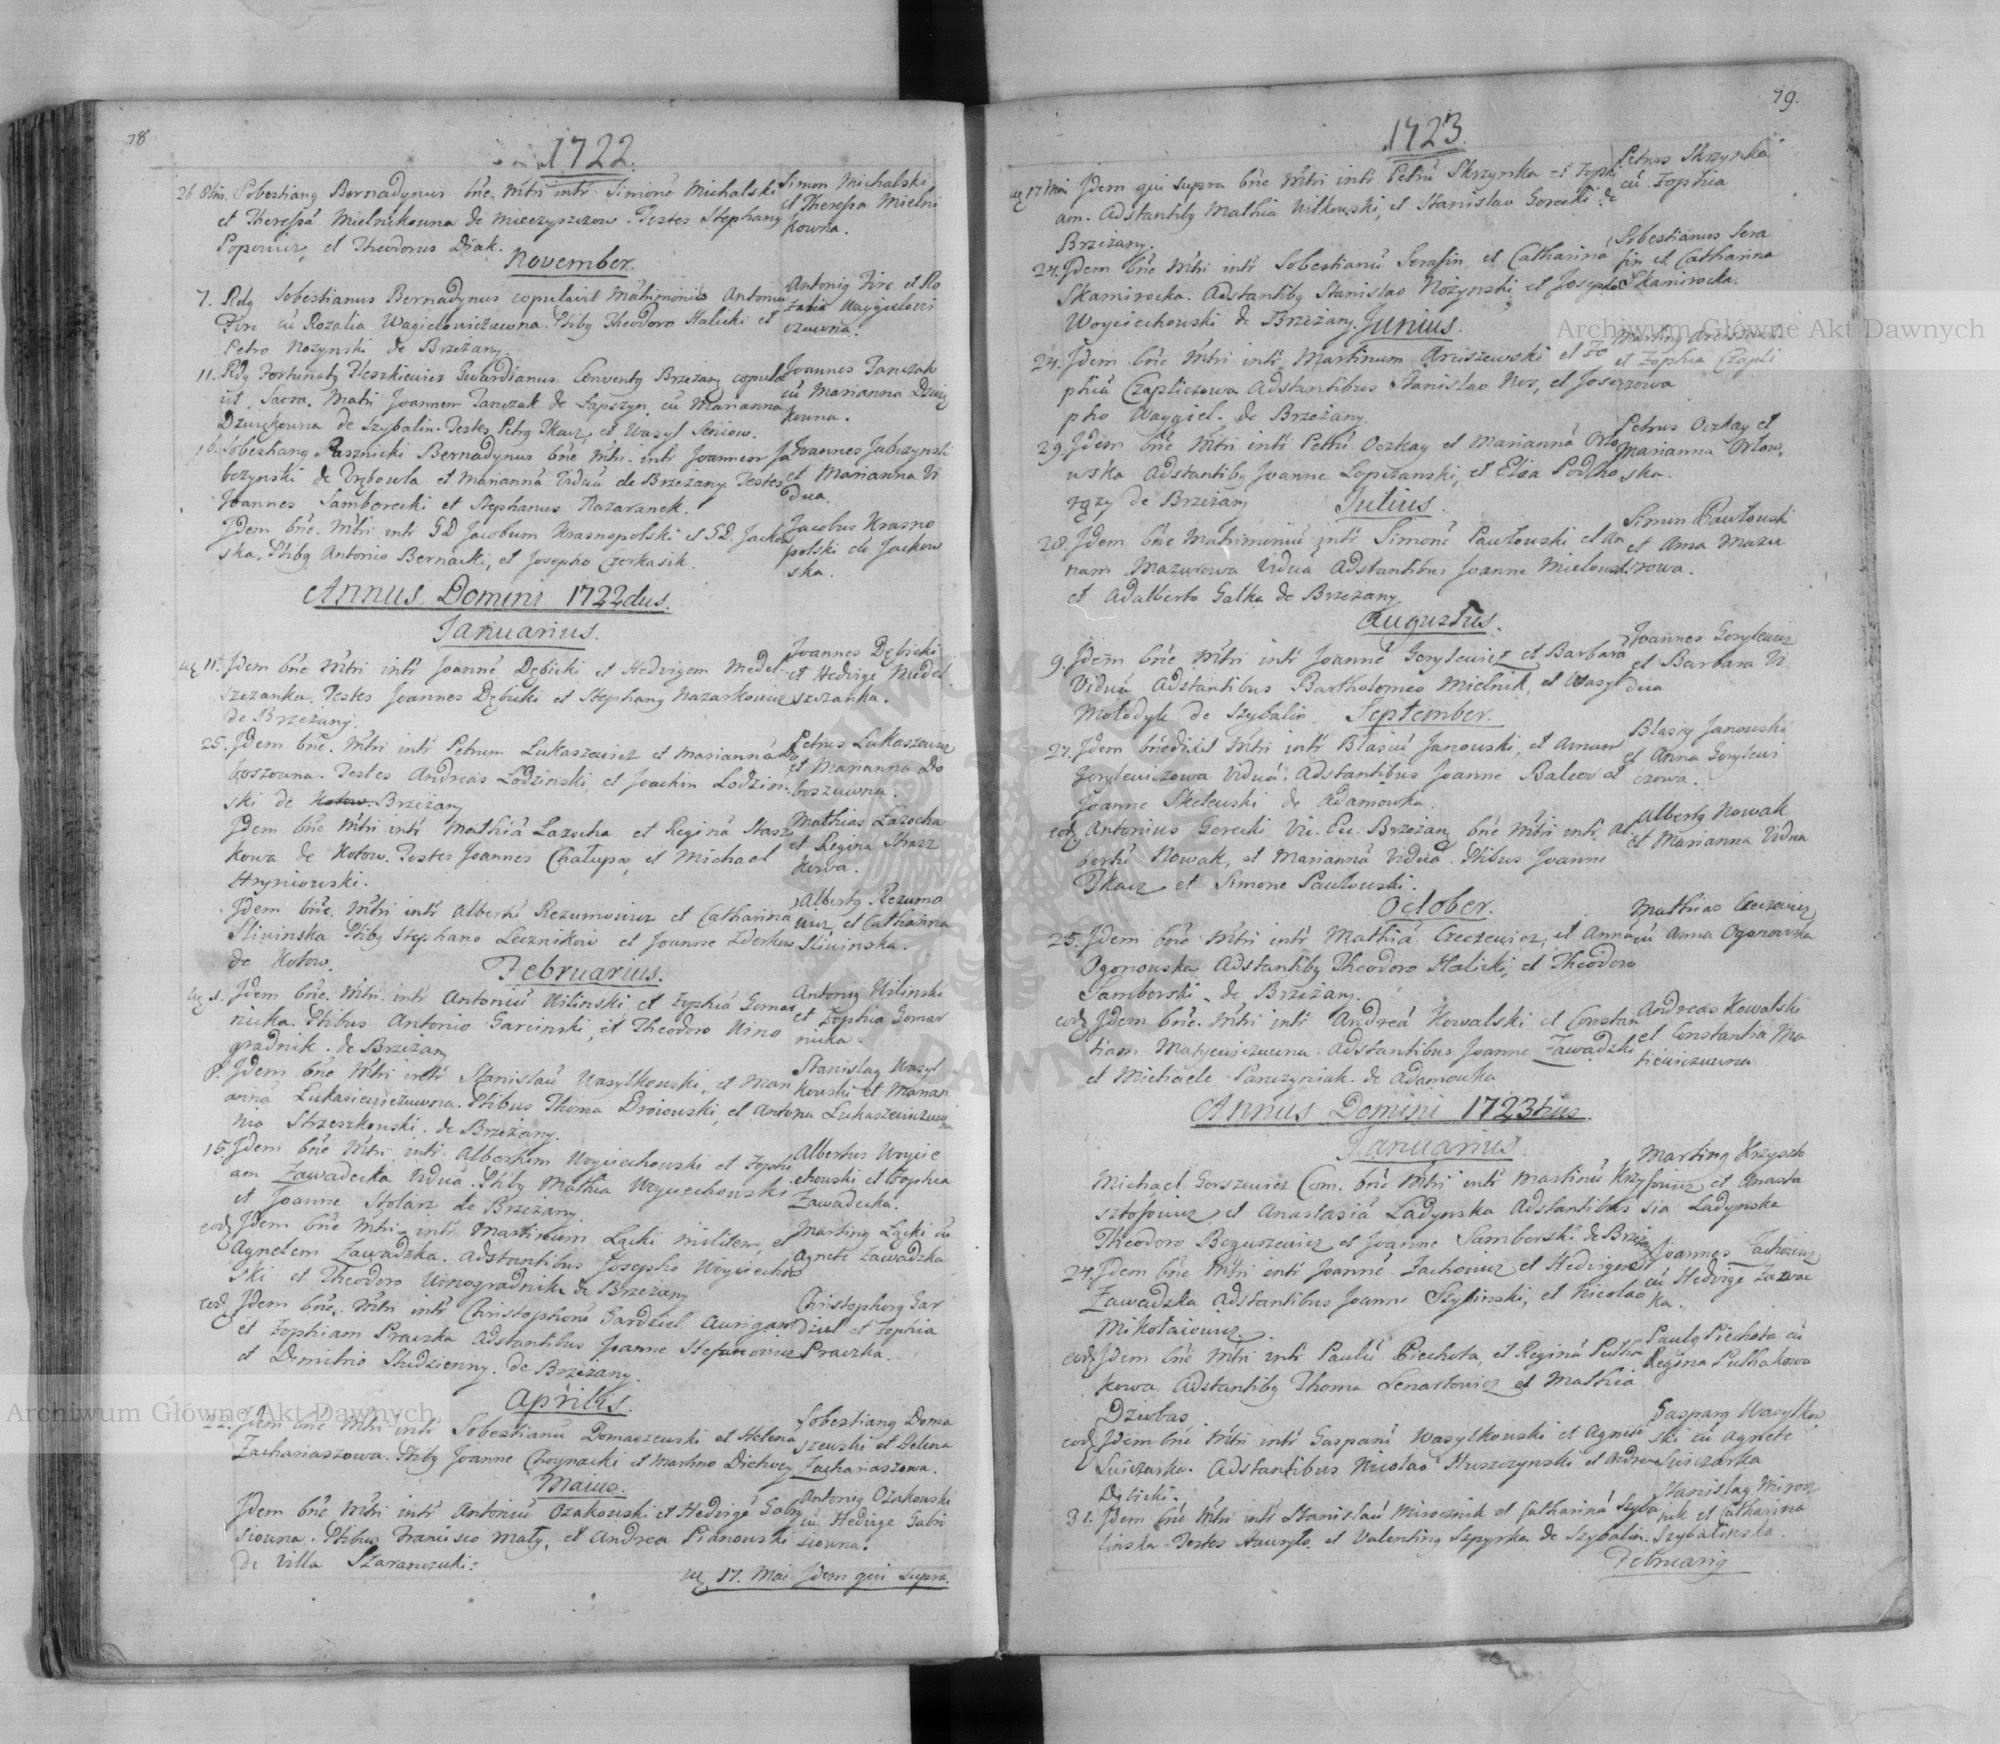 78
1722.
26 8bris. Sobestiang Bernadynus bñe. Mtri intr Simonē Michalski
et Theressā Mielnikowna de Mieczyszczow. Testes Stephang
Popowicz, et Theodorus Diak.
Simon Michalski
et Theressa Mielni
kowna.
November.
7. Rdg Sobestianus Bernadynus copulavit Matrimonio Antoniu
Firc cū Rozalia Wagielowiczuwna. Ptibg Theodoro Halicki et
Petro Nozynski de Brzeżany.
Antonig Firc et Ro
zalia Waygielowi
czuwna.
11. Rdg Fortunatg Pleszkiewicz Gwardianus Conventg Brzeżang copula
vit Sacra. Matri Joannem Janczak de Łapszyn, cū Marianna
Dzwiękowna de Szybalin. Testes, Petrg Tkacz, et Wasyl
Joannes Janczak
cū Marianna Dzwię
kowna.
16. Sobestiang Pasznicki Bernadynus bñe Mtri. intr Joannem Ja
bczynski de Trębowla et Mariannā Viduā de Brzeżany. Testes
Joannes Samborecki et Stephanus Nazaranek.
Joannes Jabczynski
et Marianna Vi
dua.
Jdem bñe. Mtri intr GD Jacobum Krasnopolski et GD. Jackow
ska, Ptibg Antonio Bernacki, et Josepho Czerkasik.
Jacobus Krasno
polski cū Jackow
ska.
Annus Domini 1722dus.
Januarius.
11. Jdem bñe Mtri intr Joannē Dębicki et Hedvigem Medel
szczanka. Testes Joannes Dębicki et Stephang Nazarkowicz
de Brzeżany.
Joannes Dębicki
et Hedvige Medel
szczanka.
25. Jdem bñe. Mtri intr Petrum Lukaszewicz et Mariannā Do
boszowna. Testes Andreas Lodzinski, et Joachim Lodzin
ski de Kotow Brzeżany
Petrus Lukaszewicz
et Marianna Do
boszuwna.
Jdem bñe Mtri intr Mathiā Lazocha et Reginā Stasz
kowa de Kotow. Testes Joannes Chałupa, et Michael
Hryniowski.
Mathias Lazocha
et Regina Strasz
kowa.
Jdem bñe. Mtri intr Albertū Rezumowicz et Catharina
Sliwinska Ptibg Stephano Lecznikow et Joanne Zderkow
de Kotow.
Albertg Rezumo
wicz et Catharina
Sliwinska.
Februarius.
Jdem bñe. Mtri. intr Antoniū Wilinski, et Zophiā Gomar
nicka. Ptibus Antonio Garcinski, et Theodoro Wino
gradnik. de Brzeżany
Antonig Wilinski
et Zophia Gomar
nicka.
8. Jdem bñe Mtri intr Stanislaū Wasylkowski, et Mari
annā Lukasiewiczuwna. Ptibus Thoma Droiowski, et Anto
nio Strzeszkowski. de Brzeżany.
Stanislag Wasyl
kowski et Marian
na Lukaszewiczuw
na
15. Jdem bñe Mtri intr Albertum Woyciechowski et Zophi
am Zawadecka Viduā. Ptibg Mathia Woyciechowski
et Joanne Stolarz de Brzeżany.
Albertus Woycie
chowski et Zophia
Zawadecka.
eodē Jdem bñe Mtri intr Martinum Lącki militem, et
Agnetem Zawadzka. Adstantibus Josepho Woyciechow
ski et Theodoro Winogradnik de Brzeżany
Marting Lącki cū
Agnete Zawadzka
eodē Jdem bñe. Mtri intr Christophorū Gardziel Aurigam
et Zophiam Praczka Adstantibus Joanne Stefanowicz
et Dimitrio Studzienny. de Brzeżany.
Christophorg Gar
dziel et Zophia
Praczka.
Aprilis.
22. Jdem bñe Mtri intr Sobestianū Domaszewski et Helena
Zachariaszowa. Ptibg Joanne Choynacki et Martino
Sobestiang Doma
szewski et Helena
Zachariaszowa.
Maius.
Jdem bñe Mtri intr Antoniū Ozakowski et Hedvigē Gabry
siowna. Ptibus Francisco Mały, et Andrea Pianowski
de Villa Szaranczuki:
Antonig Ozakowski
cū Hedvige Gabri
siowna.
17. Mai Jdem qui supra.
79.
1723.
17 Mai Jdem qui supra bñe Mtri intr Petrū Skrzynka et Zophi
am. Adstantibg Mathia Witkowski, et Stanislao Gorecki de
Brzeżany.
Petrus Skrzynka
cū Zophia
24. Jdem bñe Mtri intr Sobestianū Serafin, et Catharina
Skamirocka. Adstantibg Stanislao Nozynski, et Josepho
Woyciechowski de Brzeżany.
Sobestianus Sera
fin et Catharina
Skamirocka.
Junius.
24. Jdem bñe Mtri intr Martinum Aruszewski et Zo
phiā Czapliczowa Adstantibus Stanislao Nos, et Jose
pho Waygiel. de Brzeżany.
Marting Aruszewski
et Zophia Czapli
czowa
29. Jdem bñe Mtri intr Petrū Oczkay et Mariannā Orło
wska Adstantibg Joanne Lopuszanski, et Elia Podho
rązy de Brzeżany
Petrus Oczkay et
Marianna Orłow
ska.
Julius.
28. Jdem bñe Matrimoniū intr Simonē Pawłowski et An
nam Mazurowa Viduā Adstantibus Joanne
et Adalberto Gałka de Brzeżany
Simon Pawłowski
et Anna Mazu
rowa.
Augustus.
9. Jdem bñe Mtri intr Joannē Gorylewicz et Barbara
Viduā Adstantibus Bartholomeo Mielnik, et Wasyl
Mołodyk de Szybalin.
Joannes Gorylewicz
et Barbara Vi
dua
September.
27. Jdem bñedixit Mtri intr Blasiū Janowski, et Annam
Gorylewiczowa Viduā. Adstantibus Joanne Balcer et
Joanne Skelewski de Adamowka.
Blasig Janowski
et Anna Gorylewi
czowa.
eodē Antonius Gorecki Vic. Ecc. Brzeżang bñe Mtri intr Al
bertū Nowak, et Mariannā Viduā. Ptibus Joanne
Tkacz et Simone Pawłowski.
Albertg Nowak
et Marianna Vidua
October.
25. Jdem bñe Mtri intr Mathiā Czeczewicz, et Annā
Ogonowska Adstantibg Theodoro Halicki, et Theodoro
Samborski. de Brzeżany.
Mathias Czeczewicz
cū Anna Ogonowska
eodē Jdem bñe. Mtri intr Andreā Kowalski et Constan
tiam Matyewiczuwna. Adstantibus Joanne Zawadzki
et Michaele Panczyniak. de Adamowka
Andreas Kowalski
et Constantia Ma
tiewiczuwna
Annus Domini 1723tius.
Januarius.
Michael Gorszewicz Com. bñe Mtri intr Martinū Krzy
sztofowicz, et Anastasiā Ladynska Adstantibus
Theodoro Boguszewicz et Joanne Samborski de Brzeża
Marting Krzyszto
fowicz et Anasta
sia Ladynska
24. Jdem bñe Mtri intr Joannē Zachowicz et Hedvigem
Zawadzka Adstantibus Joanne Szylinski, et Nicolao
Mikołaiowicz.
Joannes Zachowicz
cū Hedvige Zawac
ka.
eodē Jdem bñe Mtri intr Paulū Piechota, et Reginā Pułka
kowa Adstantibg Thoma Lenartowicz et Mathia
Dziubas
Paulg Piechota cū
Regina Pułkakowa
eodē Jdem bñe Mtri intr Gasparū Wasylkowski et Agneti
Sliczarka. Adstantibus Nicolao Huszczynski et Andrea
Dębicki.
Gasparg Wasylkow
ski cū Agnete
Sliczarka
31. Jdem bñe Mtri intr Stanislaū Mirocznik et Catharinā Szyba
linska. Testes Hawryło et Valenting Szpyrka de Szybalin.
Stanislag Mirocz
nik et Catharina
Szybalinska.
Februarig
Archiwum Główne Akt Dawnych
Archiwum Główne Akt Dawnych